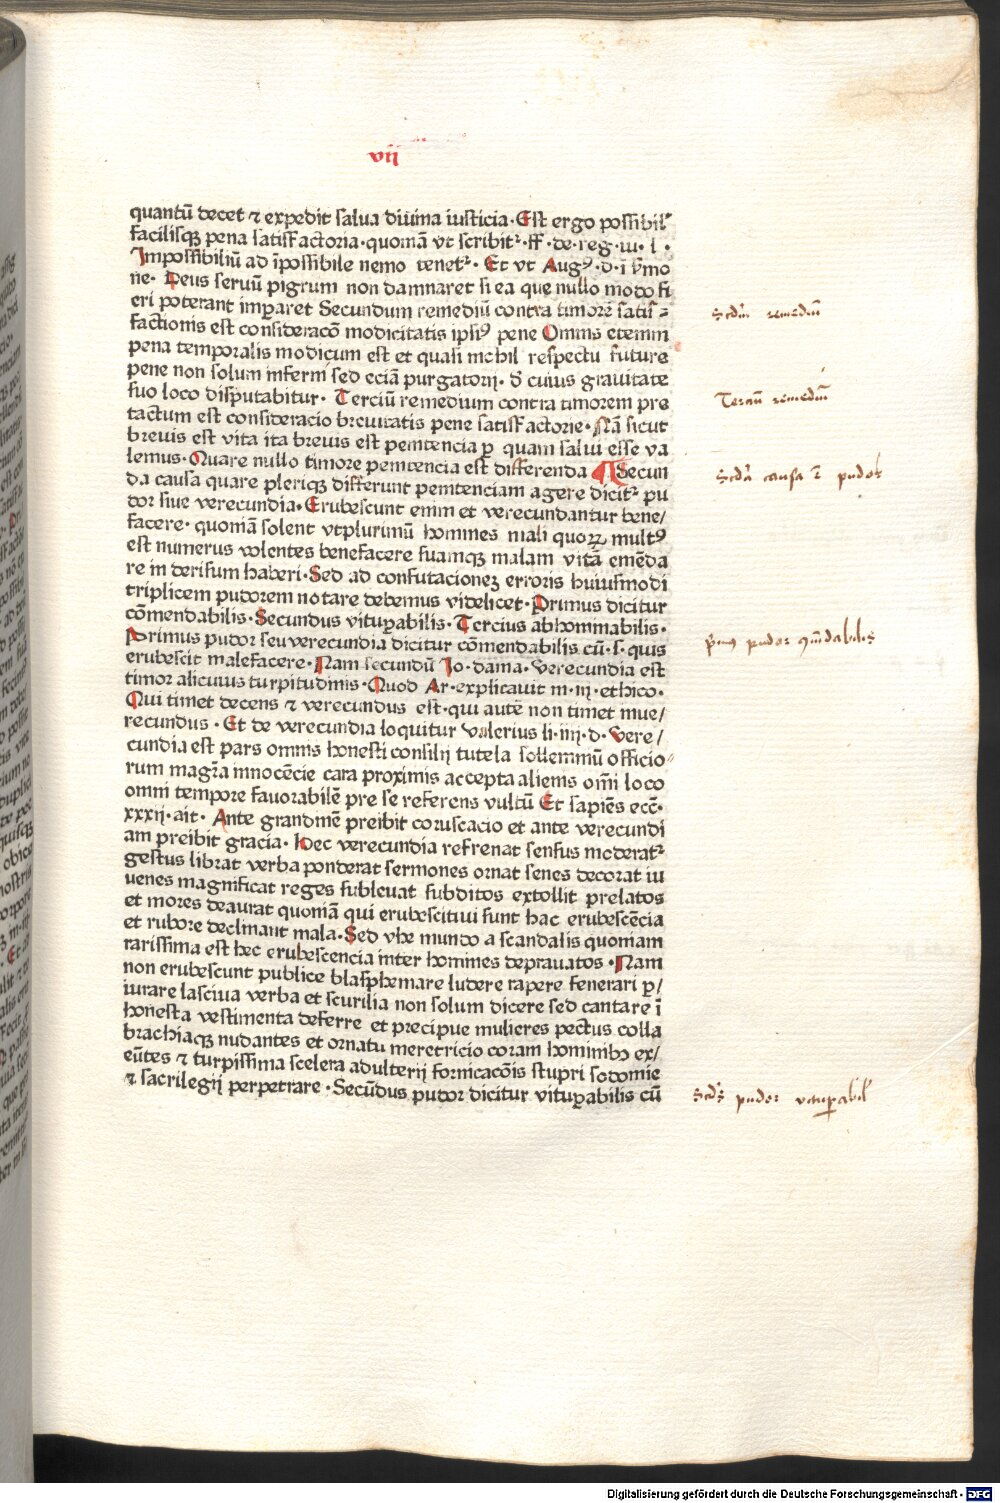 vij
quantū decet ⁊ expedit salua diuina iusticia · Est ergo possibil'
facilisqꝫ pena satisfactoria · quoniā vt scribit᷑ · ff · de · reg · iu · l ·
Impossibiliū ad īpossibile nemo tenet᷑ · Et vt Augꝰ · d · ī s̄mo
ne · Deus seruū pigrum non damnaret si ea que nullo modo fi
eri poterant imparet Secundum remediū contra timorē satis⸗
factionis est consideracō modicitatis ipsiꝰ pene Omnis etenim
pena temporalis modicum est et quasi nichil respectu future
pene non solum inferni sed eciā purgatorij · d̄ cuius grauitate
suo loco disputabitur · Terciū remedium contra timorem pre
tactum est consideracio breuitatis pene satisfactorie · Nā sicut
breuis est vita ita breuis est penitencia ꝑ quam salui esse va
lemus · Quare nullo timore penitencia est differenda ¶ Secun
da causa quare pleriqꝫ differunt penitenciam agere dicit᷑ pu
dor siue verecundia · Erubescunt enim et verecundantur bene/
facere · quoniā solent vtplurimū homines mali quoꝝ multꝰ
est numerus volentes benefacere suamqꝫ malam vitā emēda
re in derisum haberi · Sed ad confutacionez erroris huiusmodi
triplicem pudorem notare debemus videlicet · Primus dicitur
cōmendabilis · Secundus vituꝑabilis · Tercius abhominabilis ·
Primus pudor seu verecundia dicitur cōmendabilis cū · s · quis
erubescit malefacere · Nam secundū Jo · dama · Verecundia est
timor alicuius turpitudinis · Quod Ar · explicauit in · iij · ethico ·
Qui timet decens ⁊ verecundus est · qui autē non timet inue/
recundus · Et de verecundia loquitur Valerius li · iiij · d · Vere/
cundia est pars omnis honesti consilij tutela sollemniū officio⸗
rum magr̄a innocēcie cara proximis accepta alienis om̄i loco
omni tempore fauorabilē pre se referens vultū Et sapiēs ecc̄ ·
xxxij · ait · Ante grandinē preibit coruscacio et ante verecundi
am preibit gracia · Hec verecundia refrenat sensus moderat᷑
gestus librat verba ponderat sermones ornat senes decorat iu
uenes magnificat reges subleuat subditos extollit prelatos
et mores deaurat quoniā qui erubescitiui sunt hac erubescēcia
et rubore declinant mala · Sed vhe mundo a scandalis quoniam
rarissima est hec erubescencia inter homines deprauatos · Nam
non erubescunt publice blasphemare ludere rapere fenerari ꝑ/
iurare lasciua verba et scurilia non solum dicere sed cantare ī
honesta vestimenta defferre et precipue mulieres pectus colla
brachiaqꝫ nudantes et ornatu meretricio coram hominibꝯ ex/
eūtes ⁊ turpissima scelera adulterij fornicacōis stupri sodomie
⁊ sacrilegij perpetrare · Secūdus pudor dicitur vituꝑabilis cū
Scdm̄ remediū
Terciū remediū
Scdā causa ē pudor
p̄mꝰ pudor ꝯmēdabilis
Scds̄ pudor vituꝑabil'
Digitalisierung gefördert durch die Deutsche Forschungsgemeinschaft · DFG